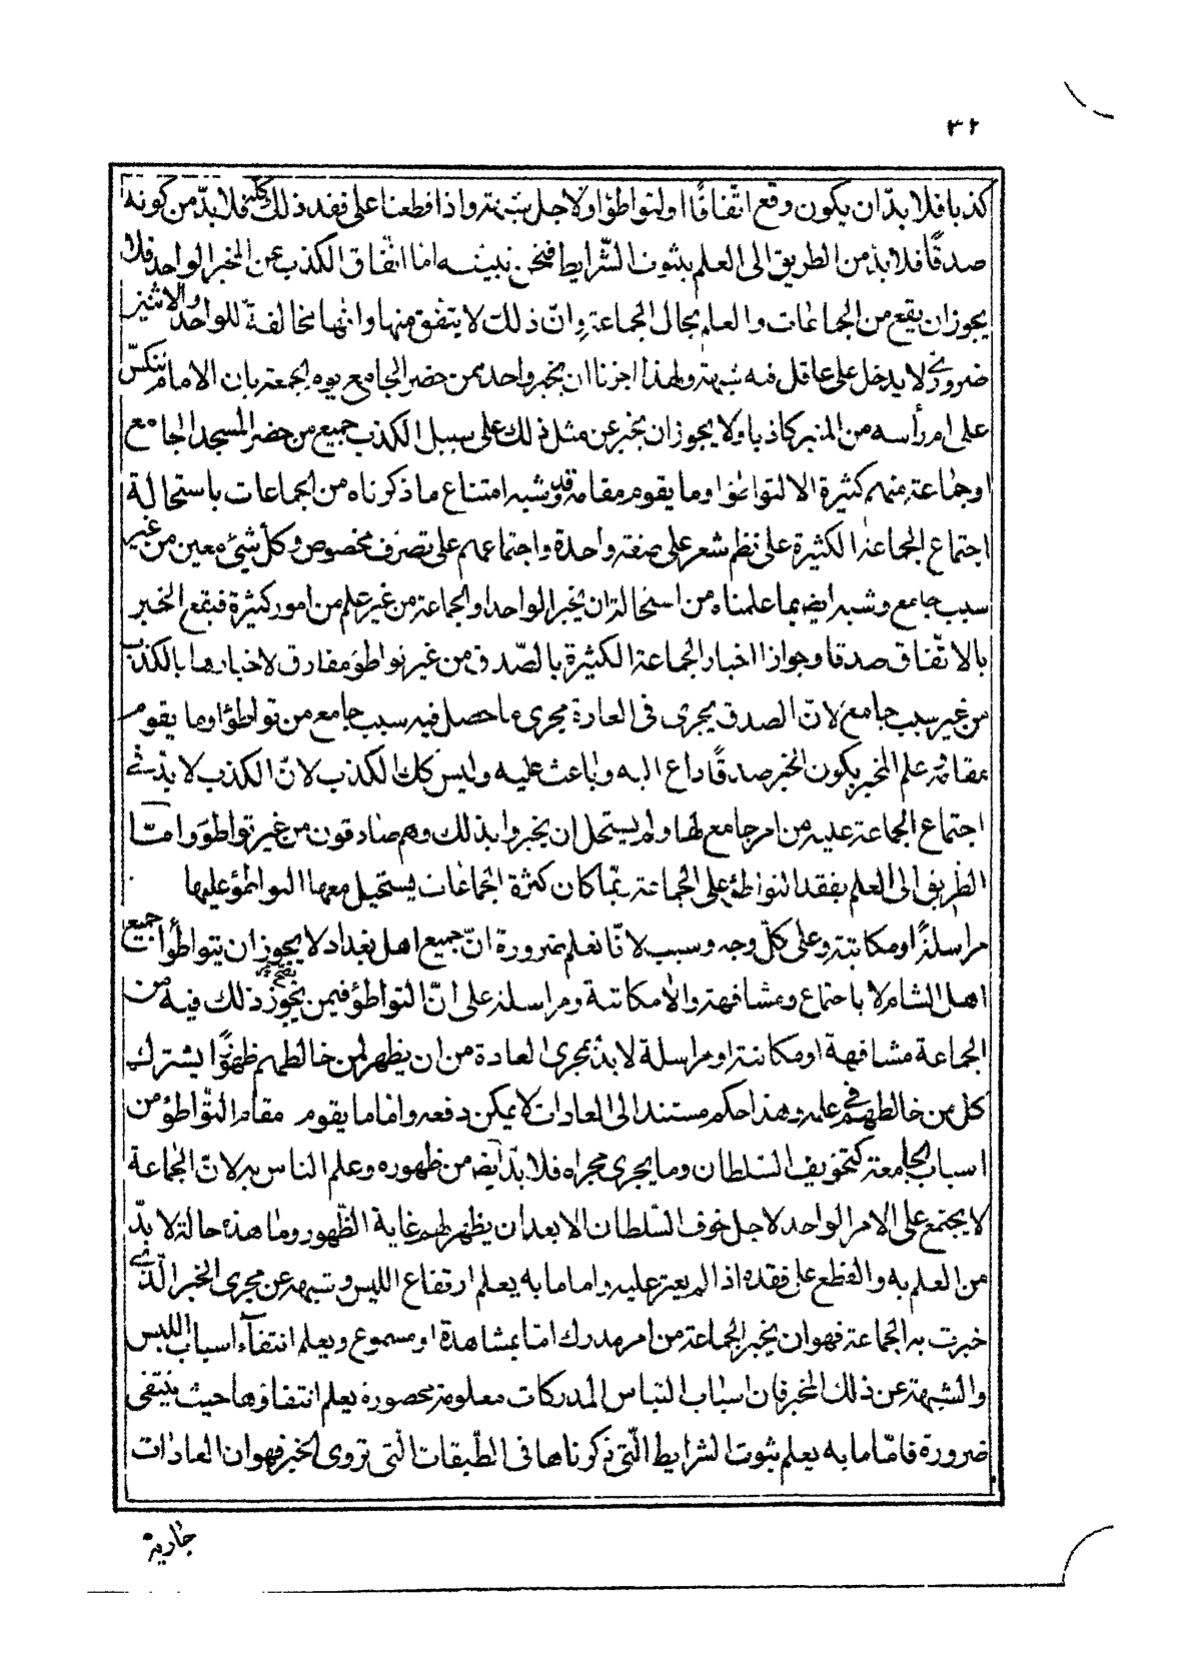 ٣٢
كذبا فلا بدّ ان يكون وقع اتّفاقًا او لتواطؤ او لاجل شبهة واذا قطعنا على فقد ذلك كلّه فلا بدّ من كونه
صدقًا فلا بدّ من الطريق الى العلم بثبوت الشّرايط فنحن نبيّنه امّا اتّفاق الكذب عن المخبر الواحد فلا
يجوز ان يقع من الجماعات والعلم بحال الجماعة وانّ ذلك لا يتفق منها وانّها مخالفة للواحد والاثنين
ضرورىّ لا يدخل على عاقل فيه شبهة ولهذا اجزنا ان يخبر واحد ممن حضر الجامع يوم الجمعة بان الامام تنكّس
على ام رأسه من المنبر كاذبا ولا يجوز ان يخبر عن مثل ذلك على سبيل الكذب جميع من حضر المسجد الجامع
او جماعة منهم كثيرة الا لتواطؤ او ما يقوم مقامه وقد شبه امتناع ما ذكرناه من الجماعات باستحالة
اجتماع الجماعة الكثيرة على نظم شعر على صفة واحدة واجتماعهم على تصرّف مخصوص وكل شىء معين من غير
سبب جامع وشبه ايضا بما علمناه من استحالة ان يخبر الواحد او الجماعة من غير علم من امور كثيرة فيقع الخبر
بالاتّفاق صدقا وجواز اخبار الجماعة الكثيرة بالصّدق من غير تواطؤ مفارق لاخبارها بالكذب
من غير سبب جامع لانّ الصدق يجرى فى العادة مجرى ما حصل فيه سبب جامع من تواطؤ او ما يقوم
مقامه علم المخبر بكون الخبر صدقًا داع اليه وباعث عليه وليس كك الكذب لانّ الكذب لا بدّ فى
اجتماع الجماعة عليه من امر جامع لها ولم يستحل ان يخبروا بذلك وهم صادقون من غير تواطؤ وامّا
الطّريق الى العلم بفقد التواطؤ على الجماعة ربّما كان كثرة الجماعات يستحيل معها التواطؤ عليها
مراسلةً او مكاتبة وعلى كلّ وجه وسبب لانّا نعلم ضرورة انّ جميع اهل بغداد لا يجوز ان يتواطأوا جميع
اهل الشام لا باجتماع ومشافهة ولا مكاتبة ومراسلة على انّ التواطؤ فيمن يجوز ذلك فيه من
الجماعة مشافهة او مكاتبة او مراسلة لا بدّ بمجرى العادة من ان يظهر لمن خالطهم ظهورًا يشترك
كل من خالطهم فى علمه وهذا حكم مستند الى العادات لا يمكن دفعه وامّا ما يقوم مقام التّواطؤ من
اسباب الجامعة كتخويف السّلطان وما يجرى مجراه فلا بدّ ايضا من ظهوره وعلم الناس به لانّ الجماعة
لا يجتمع على الامر الواحد لاجل خوف السّلطان الا بعد ان يظهر لهم غاية الظّهور وما هذه حالة لا بدّ
من العلم به والقطع على فقده اذا لم يعثر عليه واما ما به يعلم ارتفاع اللبس وشبهه عن مجرى الخبر الّذى
خبرت به الجماعة فهو ان يخبر الجماعة من امر مدرك امّا بمشاهدة او مسموع ويعلم انتفآء اسباب اللبس
والشبهة عن ذلك المخبر فان اسباب التباس المدركات معلومة محصورة يعلم انتفاؤها حيث ينتفى
ضرورة فامّا ما به يعلم ثبوت الشرايط الّتى ذكرناها فى الطّبقات الّتى تروى الخبر فهو ان العادات
جارية